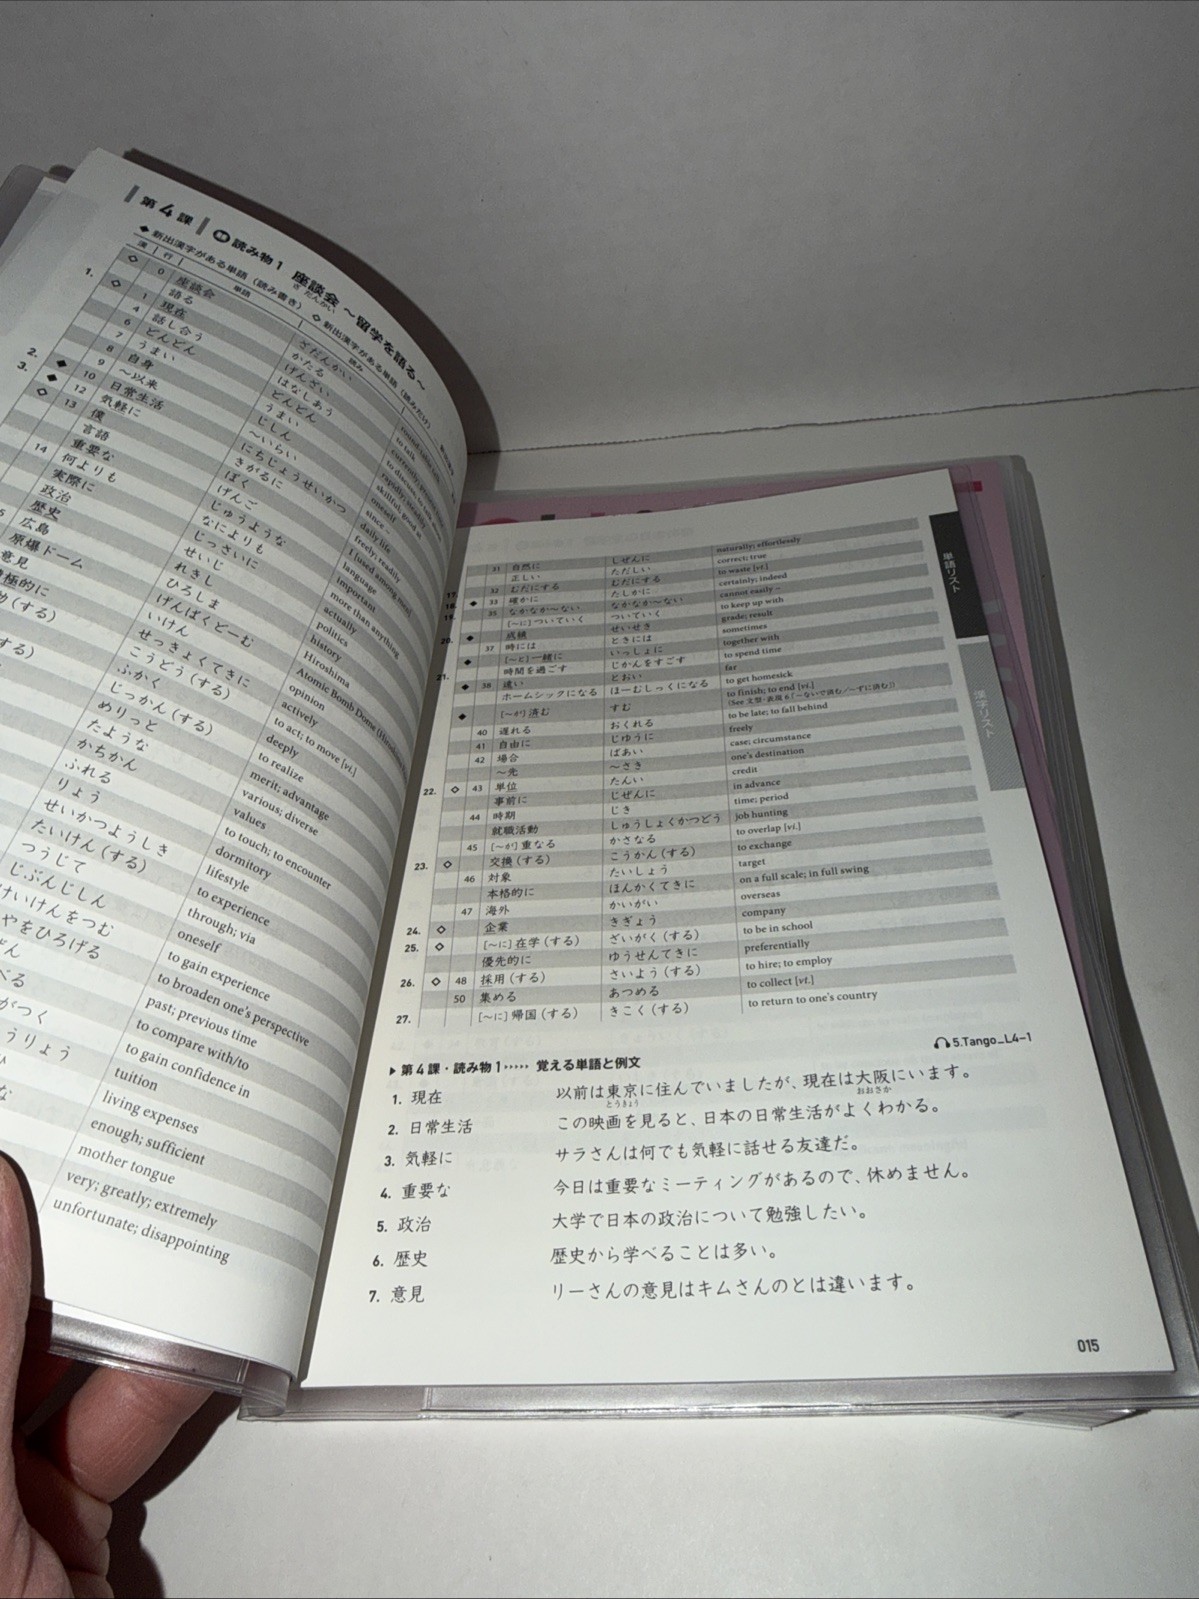 第4課 読み物1 座談会 〜留学を語る〜
ざだんかい
◆ 新出漢字がある単語（読み書き） ◇ 新出漢字がある単語（読みだけ）
漢 行 単語 読み
◇ 0 座談会 ざだんかい
語る かたる to talk
1. ◇ 1 現在 げんざい
4 話し合う はなしあう
6 どんどん どんどん
7 うまい うまい skillful; good at
8 自身 じしん oneself
9 〜以来 〜いらい since ~
2. ◆ 10 日常生活 にちじょうせいかつ daily life
3. ◆ 12 気軽に きがるに freely; readily
◇ 13 僕 ぼく
言語 げんご language
重要な じゅうような important
14 何よりも なによりも more than anything
実際に じっさいに actually
政治 せいじ politics
歴史 れきし history
広島 ひろしま Hiroshima
原爆ドーム げんばくどーむ Atomic Bomb Dome
意見 いけん opinion
せっきょくてきに actively
こうどう（する） to act; to move [vi.]
ふかく deeply
じっかん（する） to realize
めりっと merit; advantage
たような various; diverse
かちかん values
ふれる to touch; to encounter
りょう dormitory
せいかつようしき lifestyle
たいけん（する） to experience
つうじて through; via
じぶんじしん oneself
けいけんをつむ to gain experience
やをひろげる to broaden one's perspective
past; previous time
to compare with/to
がつく to gain confidence in
tuition
living expenses
enough; sufficient
mother tongue
very; greatly; extremely
unfortunate; disappointing
31 自然に しぜんに naturally; effortlessly
正しい ただしい correct; true
17. 32 むだにする むだにする to waste [vt.]
18. ◆ 33 確かに たしかに certainly; indeed
19. 35 なかなか〜ない なかなか〜ない cannot easily ~
[〜に] ついていく ついていく to keep up with
20. ◆ 成績 せいせき grade; result
37 時には ときには sometimes
◆ [〜と] 一緒に いっしょに together with
21. 時間を過ごす じかんをすごす to spend time
◆ 38 遠い とおい far
ホームシックになる ほーむしっくになる to get homesick
◆ [〜が] 済む すむ to finish; to end [vi.]
(See 文型・表現 6「〜ないで済む／〜ずに済む」)
40 遅れる おくれる to be late; to fall behind
41 自由に じゆうに freely
42 場合 ばあい case; circumstance
〜先 〜さき one's destination
22. ◇ 43 単位 たんい credit
事前に じぜんに in advance
44 時期 じき time; period
就職活動 しゅうしょくかつどう job hunting
45 [〜が] 重なる かさなる to overlap [vi.]
23. ◇ 交換（する） こうかん（する） to exchange
46 対象 たいしょう target
本格的に ほんかくてきに on a full scale; in full swing
47 海外 かいがい overseas
24. ◇ 企業 きぎょう company
25. ◇ [〜に] 在学（する） ざいがく（する） to be in school
優先的に ゆうせんてきに preferentially
26. ◇ 48 採用（する） さいよう（する） to hire; to employ
50 集める あつめる to collect [vt.]
27. [〜に] 帰国（する） きこく（する） to return to one's country
単語リスト
漢字リスト
5.Tango_L4-1
▶ 第4課・読み物1 ····· 覚える単語と例文
1. 現在 以前は東京に住んでいましたが、現在は大阪にいます。
とうきょう おおさか
2. 日常生活 この映画を見ると、日本の日常生活がよくわかる。
3. 気軽に サラさんは何でも気軽に話せる友達だ。
4. 重要な 今日は重要なミーティングがあるので、休めません。
5. 政治 大学で日本の政治について勉強したい。
6. 歴史 歴史から学べることは多い。
7. 意見 リーさんの意見はキムさんのとは違います。
015